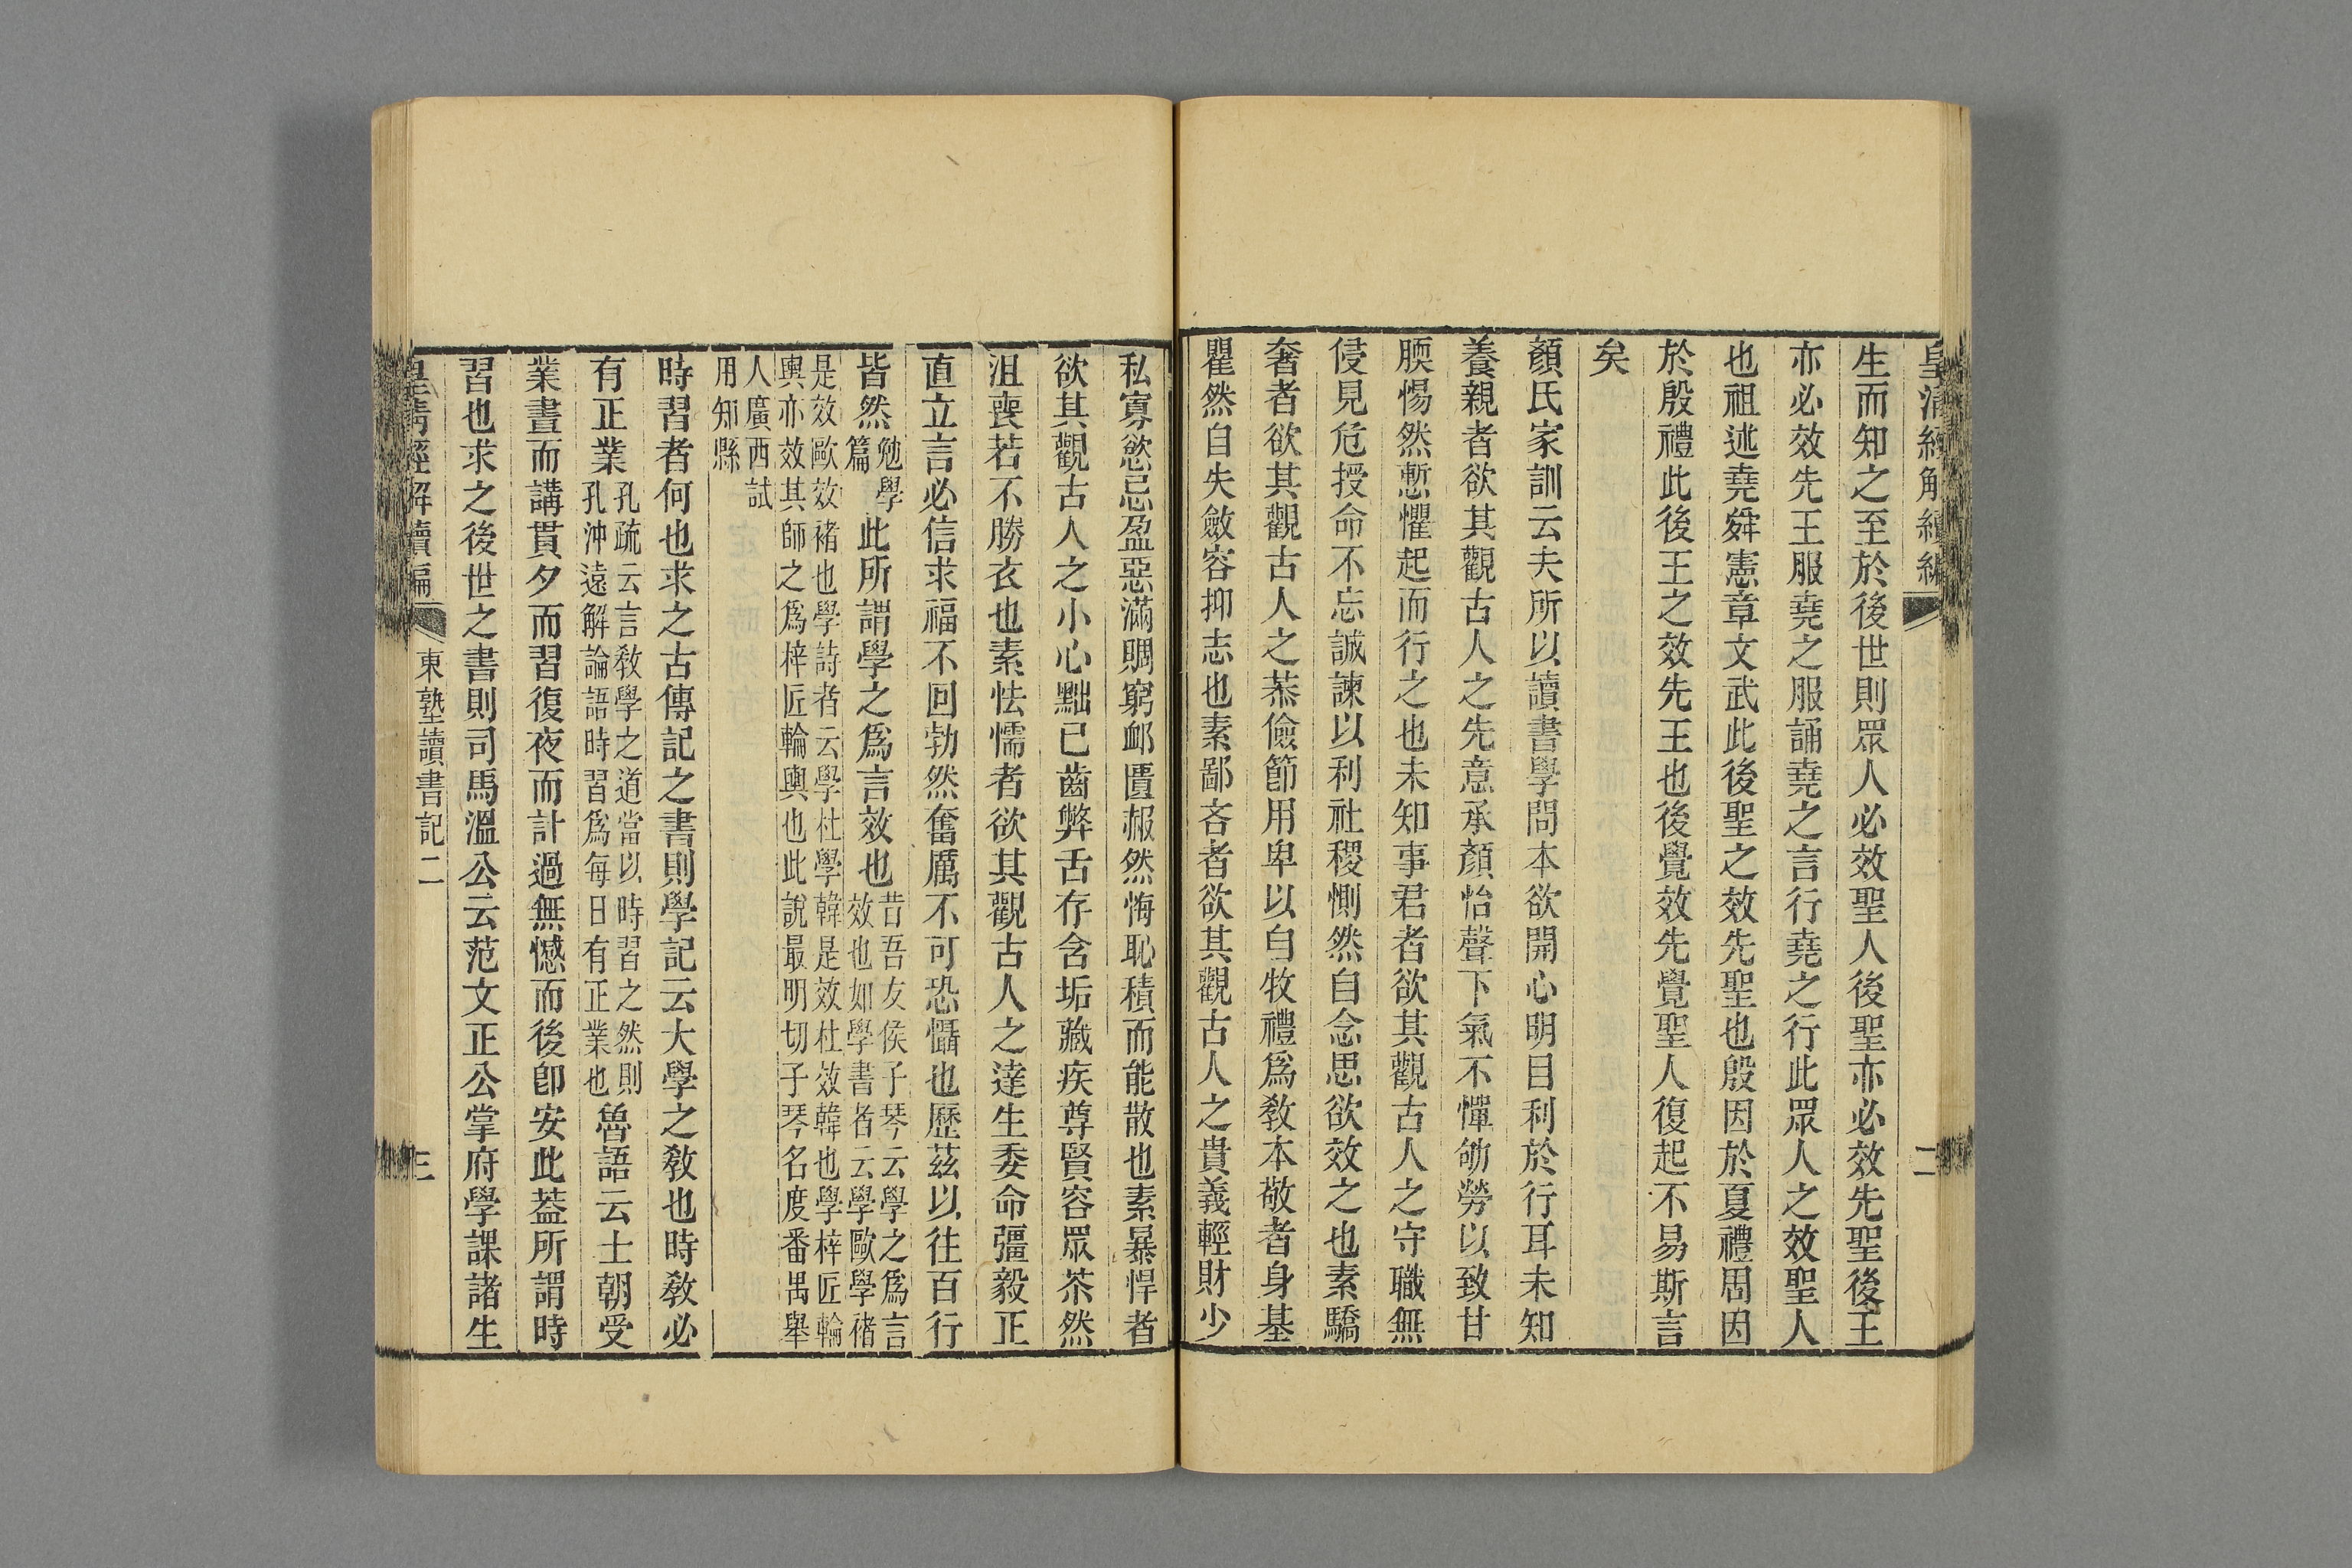 皇清經解續編
二
生而知之至於後世則眾人必效聖人後聖亦必效先聖後王
亦必效先王服堯之服誦堯之言行堯之行此眾人之效聖人
也祖述堯舜憲章文武此後聖之效先聖也殷因於夏禮周因
於殷禮此後王之效先王也後覺效先覺聖人復起不易斯言
矣
顏氏家訓云夫所以讀書學問本欲開心明目利於行耳未知
養親者欲其觀古人之先意承顏怡聲下氣不憚劬勞以致甘
腝惕然慙懼起而行之也未知事君者欲其觀古人之守職無
侵見危授命不忘誠諫以利社稷惻然自念思欲效之也素驕
奢者欲其觀古人之恭儉節用卑以自牧禮爲敎本敬者身基
瞿然自失斂容抑志也素鄙吝者欲其觀古人之貴義輕財少
私寡慾忌盈惡滿賙窮卹匱赧然悔恥積而能散也素暴悍者
欲其觀古人之小心黜己齒弊舌存含垢藏疾尊賢容眾茶然
沮喪若不勝衣也素怯懦者欲其觀古人之達生委命彊毅正
直立言必信求福不回勃然奮厲不可恐懾也歷茲以往百行
皆然勉學篇此所謂學之爲言效也昔吾友侯子琴云學之爲言
效也如學書者云學歐學褚
是效歐效褚也學詩者云學杜學韓是效杜效韓也學梓匠輪
輿亦效其師之爲梓匠輪輿也此說最明切子琴名度番禺舉
人廣西試
用知縣
時習者何也求之古傳記之書則學記云大學之敎也時敎必
有正業孔疏云言敎學之道當以時習之然則
孔沖遠解論語時習爲每日有正業也魯語云士朝受
業晝而講貫夕而習復夜而計過無憾而後卽安此蓋所謂時
習也求之後世之書則司馬溫公云范文正公掌府學課諸生
皇清經解續編
東塾讀書記二
三